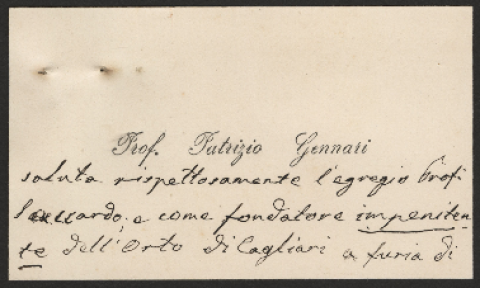 Prof. Patrizio Gennari
saluta rispettosamente l'egregio Prof.
Saccardo e come fondatore impeniten
te dell'Orto di Cagliari a furia di